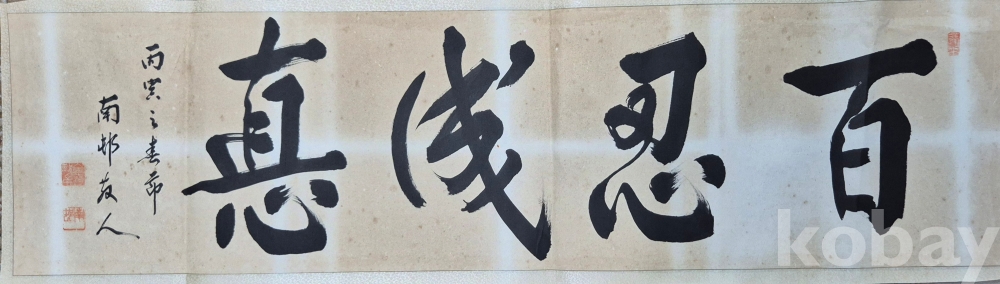 百忍成悳
丙寅之春節
南邨散人
kobay